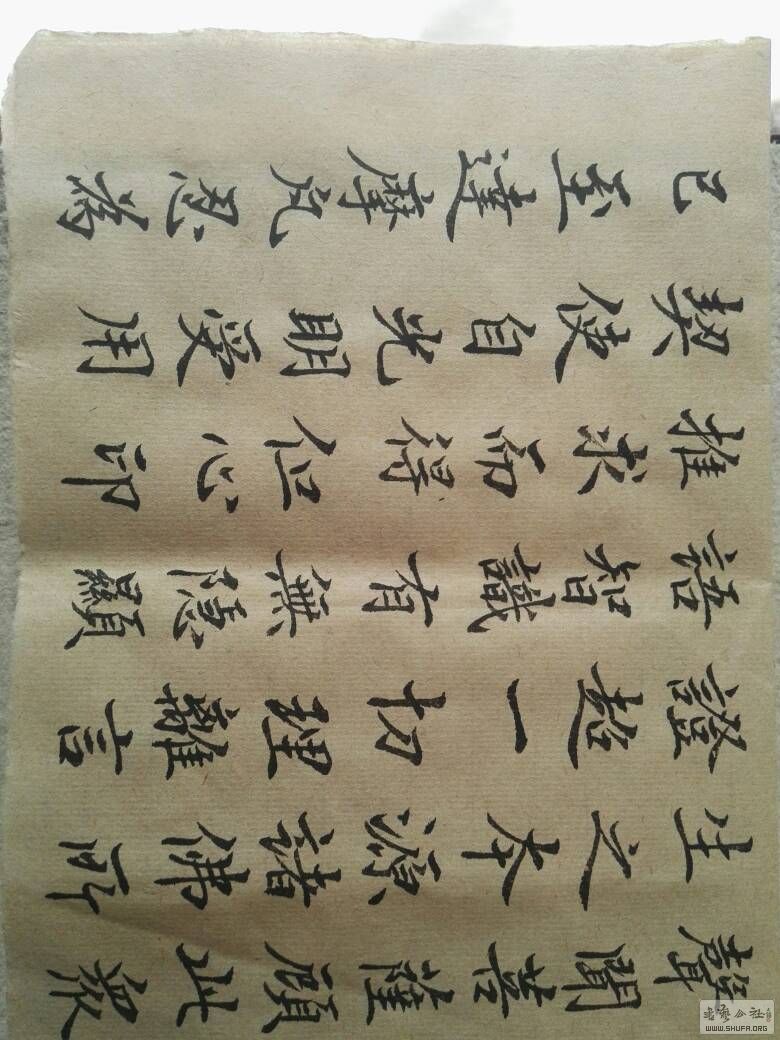 聲聞菩薩頋此眾
生之本源諸佛所
證超一切理離言
語智識有無隱顯
推求而得但心印
契使自光明受用
已至達摩兀忍為
书艺公社
WWW.SHUFA.ORG